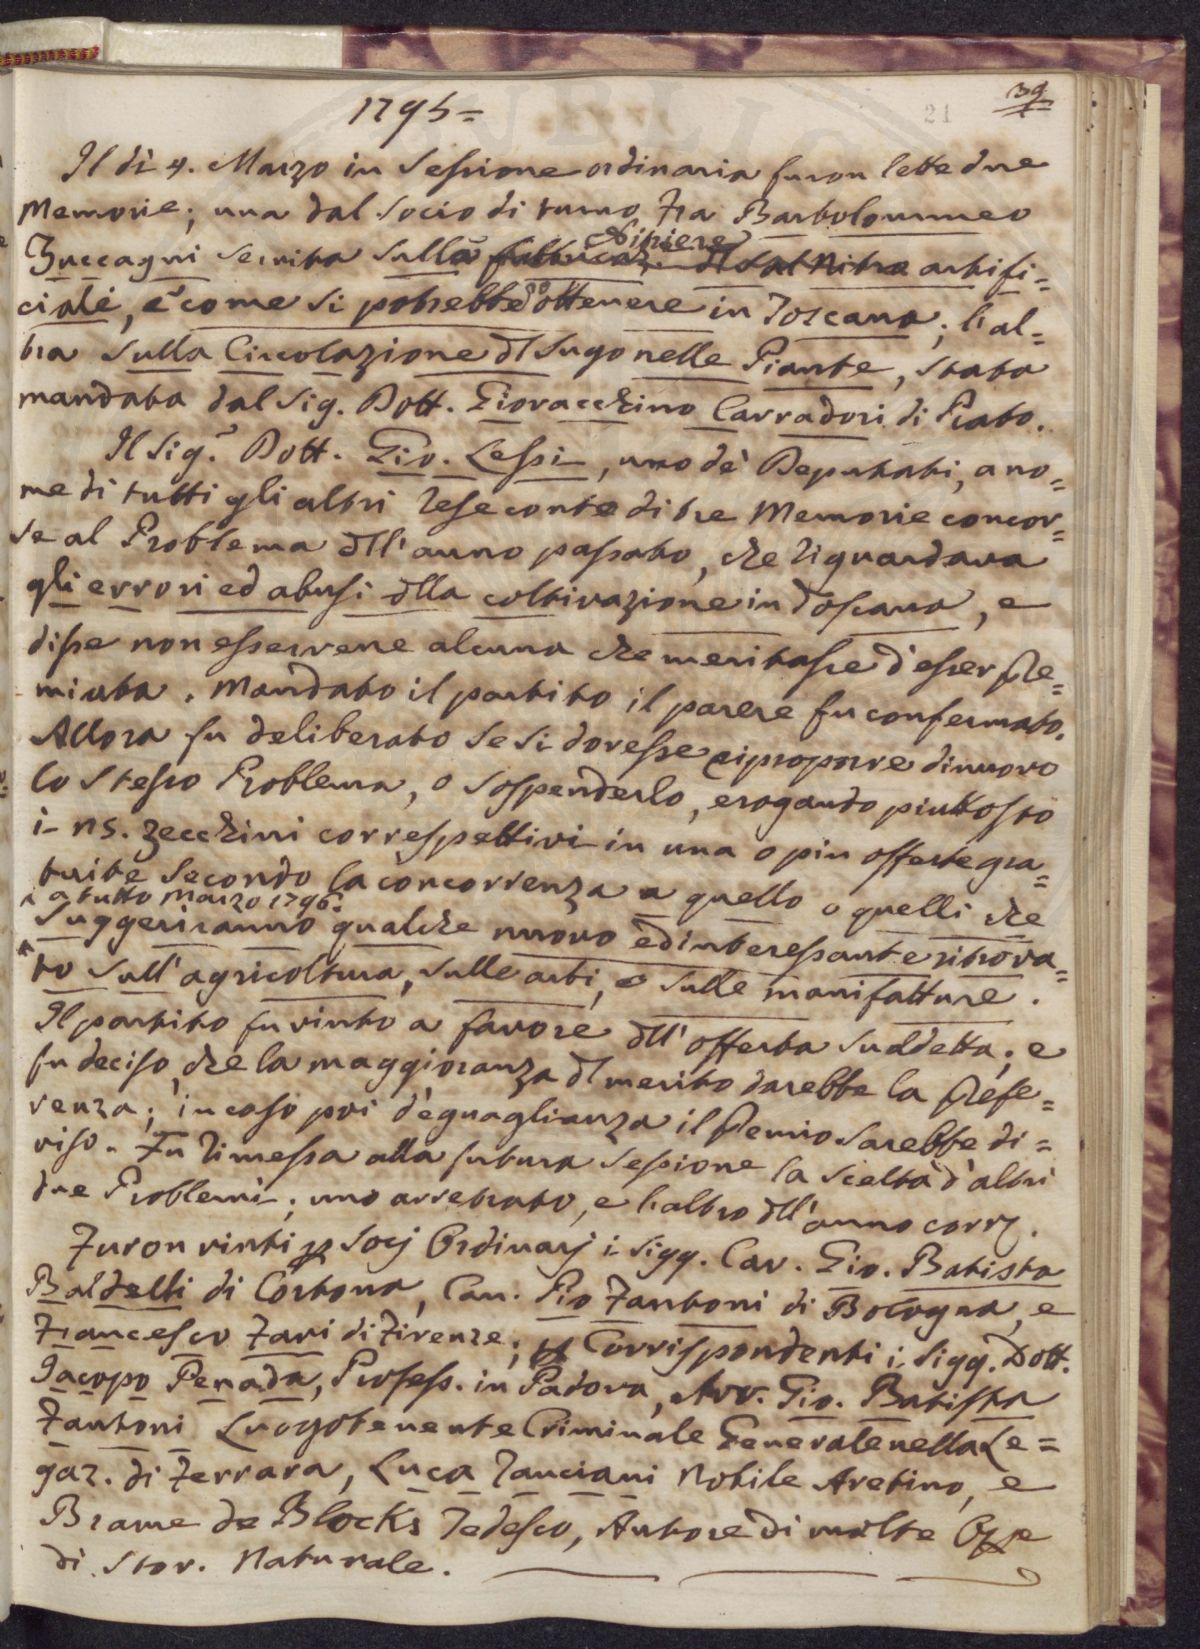 39
21
1795=
Il dì 4. Marzo in Sessione ordinaria furon lette due
Memorie; una dal Socio di turno Fra Bartolommeo
Nitriere
Zuccagni scritta sulla del Sal Nitro artifi=
ciale, e come si potrebbe ottenere in Toscana; l'al=
tra sulla Circolazione dl Sugo nelle Piante, stata
mandata dal Sig. Dott. Giovacchino Carradori di Prato.
Il Sig.r Dott. Gio. Lessi, uno dè Deputati, a no=
me di tutti gli altri rese conto di tre Memorie concor=
se al Problema dll'anno passato, che riguardava
gli errori ed abusi dlla coltivazione in Toscana, e
disse non esservene alcuna che meritasse d'esser pre=
miata. Mandato il partito il parere fu confermato.
Allora fu deliberato se si dovesse riproporre di nuovo
lo stesso Problema, o sospenderlo, erogando piuttosto
i 25. zecchini correspettivi in una o più offerte gra=
tuite secondo la concorrenza a quello o quelli che
a tutto Marzo 1796.
suggeriranno qualche nuovo ed interessante ritrova=
to sull'agricoltura, sulle arti, e sulle manifatture.
Il partito fu vinto a favore dll'offerta suddetta; e
fu deciso, che la maggioranza dl merito darebbe la prefe=
renza; in caso poi d'eguaglianza il Premio sarebbe di=
viso. Fu rimessa alla futura Sessione la scelta d'altri
due Problemi; uno arretrato, e l'altro dll'anno corr.
Furon vinti p Socj Ordinarj i Sigg. Cav. Gio. Batista
Baldelli di Cortona, Can. Pio Fantoni di Bologna, e
Francesco Favi di Firenze; p Corrispondenti i Sigg. Dott.
Iacopo Penada, Profess. in Padova, Avv. Gio. Batista
Fantoni Luogotenente Criminale Generale nella Le=
gaz. di Ferrara, Luca Tanciani Nobile Aretino, e
Brame de Blocks Tedesco, Autore di molte Ope
di Stor. Naturale.